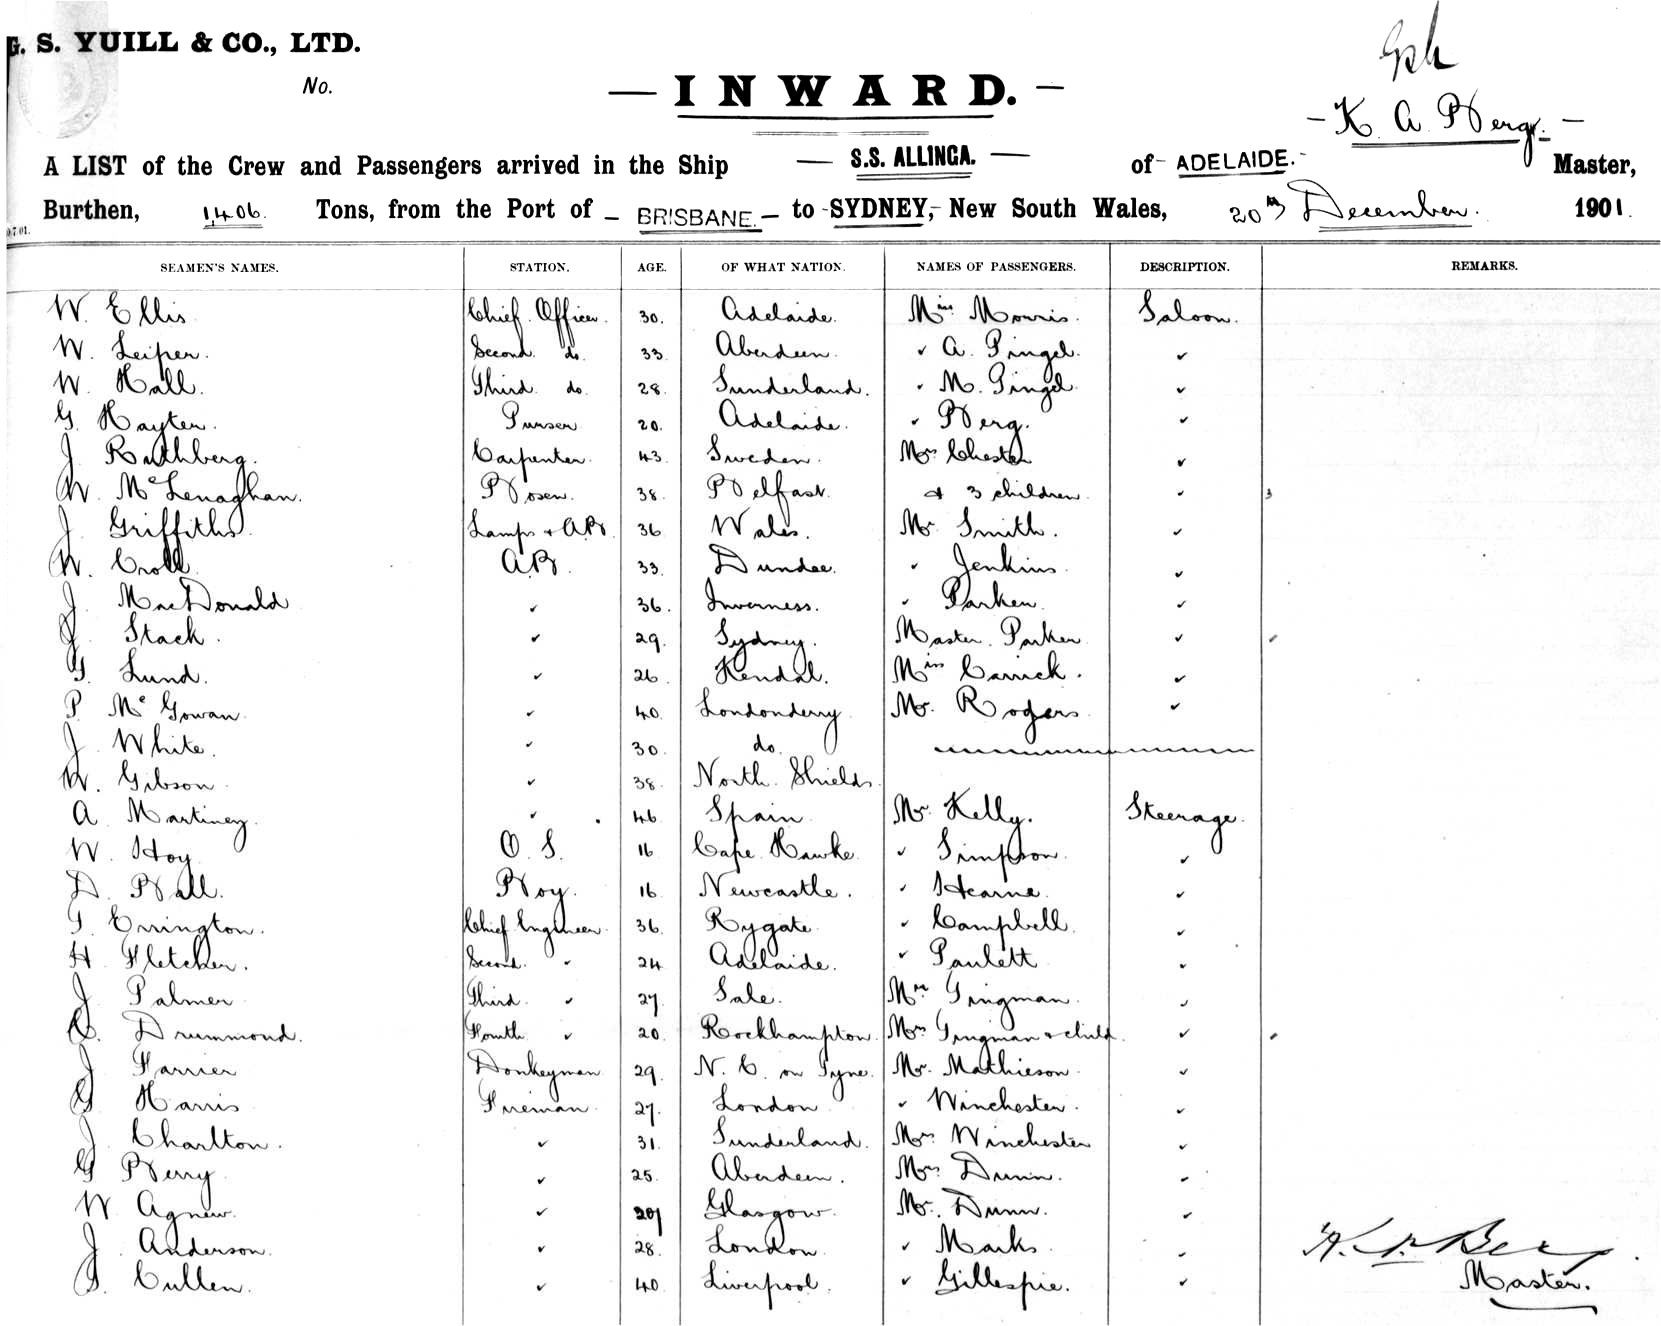 G. S. YUILL & CO., LTD.
No.
— INWARD. —
K. A. Berg.
A LIST of the Crew and Passengers arrived in the Ship — S.S. ALLINGA. — of ADELAIDE. Master,
Burthen, 1,406. Tons, from the Port of - BRISBANE - to SYDNEY, New South Wales, 20th December. 1901.
SEAMEN'S NAMES. STATION. AGE. OF WHAT NATION. NAMES OF PASSENGERS. DESCRIPTION. REMARKS.
W. Ellis Chief Officer 30. Adelaide. Miss Morris. Saloon.
W. Leiper. Second do. 33. Aberdeen. " A. Pingel. "
W. Hall. Third do. 28. Sunderland. " M. Pingel "
G. Hayter. Purser 20. Adelaide. " Berg. "
J. Rathberg. Carpenter. 43. Sweden. Mrs Chester "
W. McLenaghan. Bosen. 38. Belfast. & 3 children. " 3
J. Griffiths Lamps & AB. 36 Wales. Mr Smith. "
W. Croll AB. 33. Dundee. " Jenkins. "
J. MacDonald " 36. Inverness. " Parker. "
J. Stack. " 29. Sydney. Master Parker "
G. Lund. " 26 Kendal. Miss Carrick. "
P. McGowan. " 40. Londonderry Mr. Rogers "
J. White. " 30. do.
W. Gibson. " 38. North Shields
A. Martinez. " 46 Spain. Mr Kelly. Steerage.
W. Hoy O. S. 16 Cape Hawke " Simpson. "
D. Ball. Boy. 16 Newcastle. " Hearne. "
T. Errington. Chief Engineer 36. Rygate. " Campbell. "
H. Fletcher. Second. " 24 Adelaide. " Paulett "
J. Palmer Third. " 27. Sale. Mr Tringman. "
C. Drummond. Fourth " 20. Rockhampton. Mrs Tringman & child. "
J. Farrier Donkeyman 29. N. C. on Tyne. Mr. Mathieson. "
G. Harris Fireman. 27. London " Winchester. "
J. Charlton. " 31. Sunderland. Mrs Winchester "
G. Berry " 25. Aberdeen. Mrs Dunn. "
W. Agnew. " 29 Glasgow. Mr. Dunn. "
J. Anderson. " 28. London " Marks. "
J. Cullen. " 40. Liverpool. " Gillespie. "
K. A. Berg
Master.